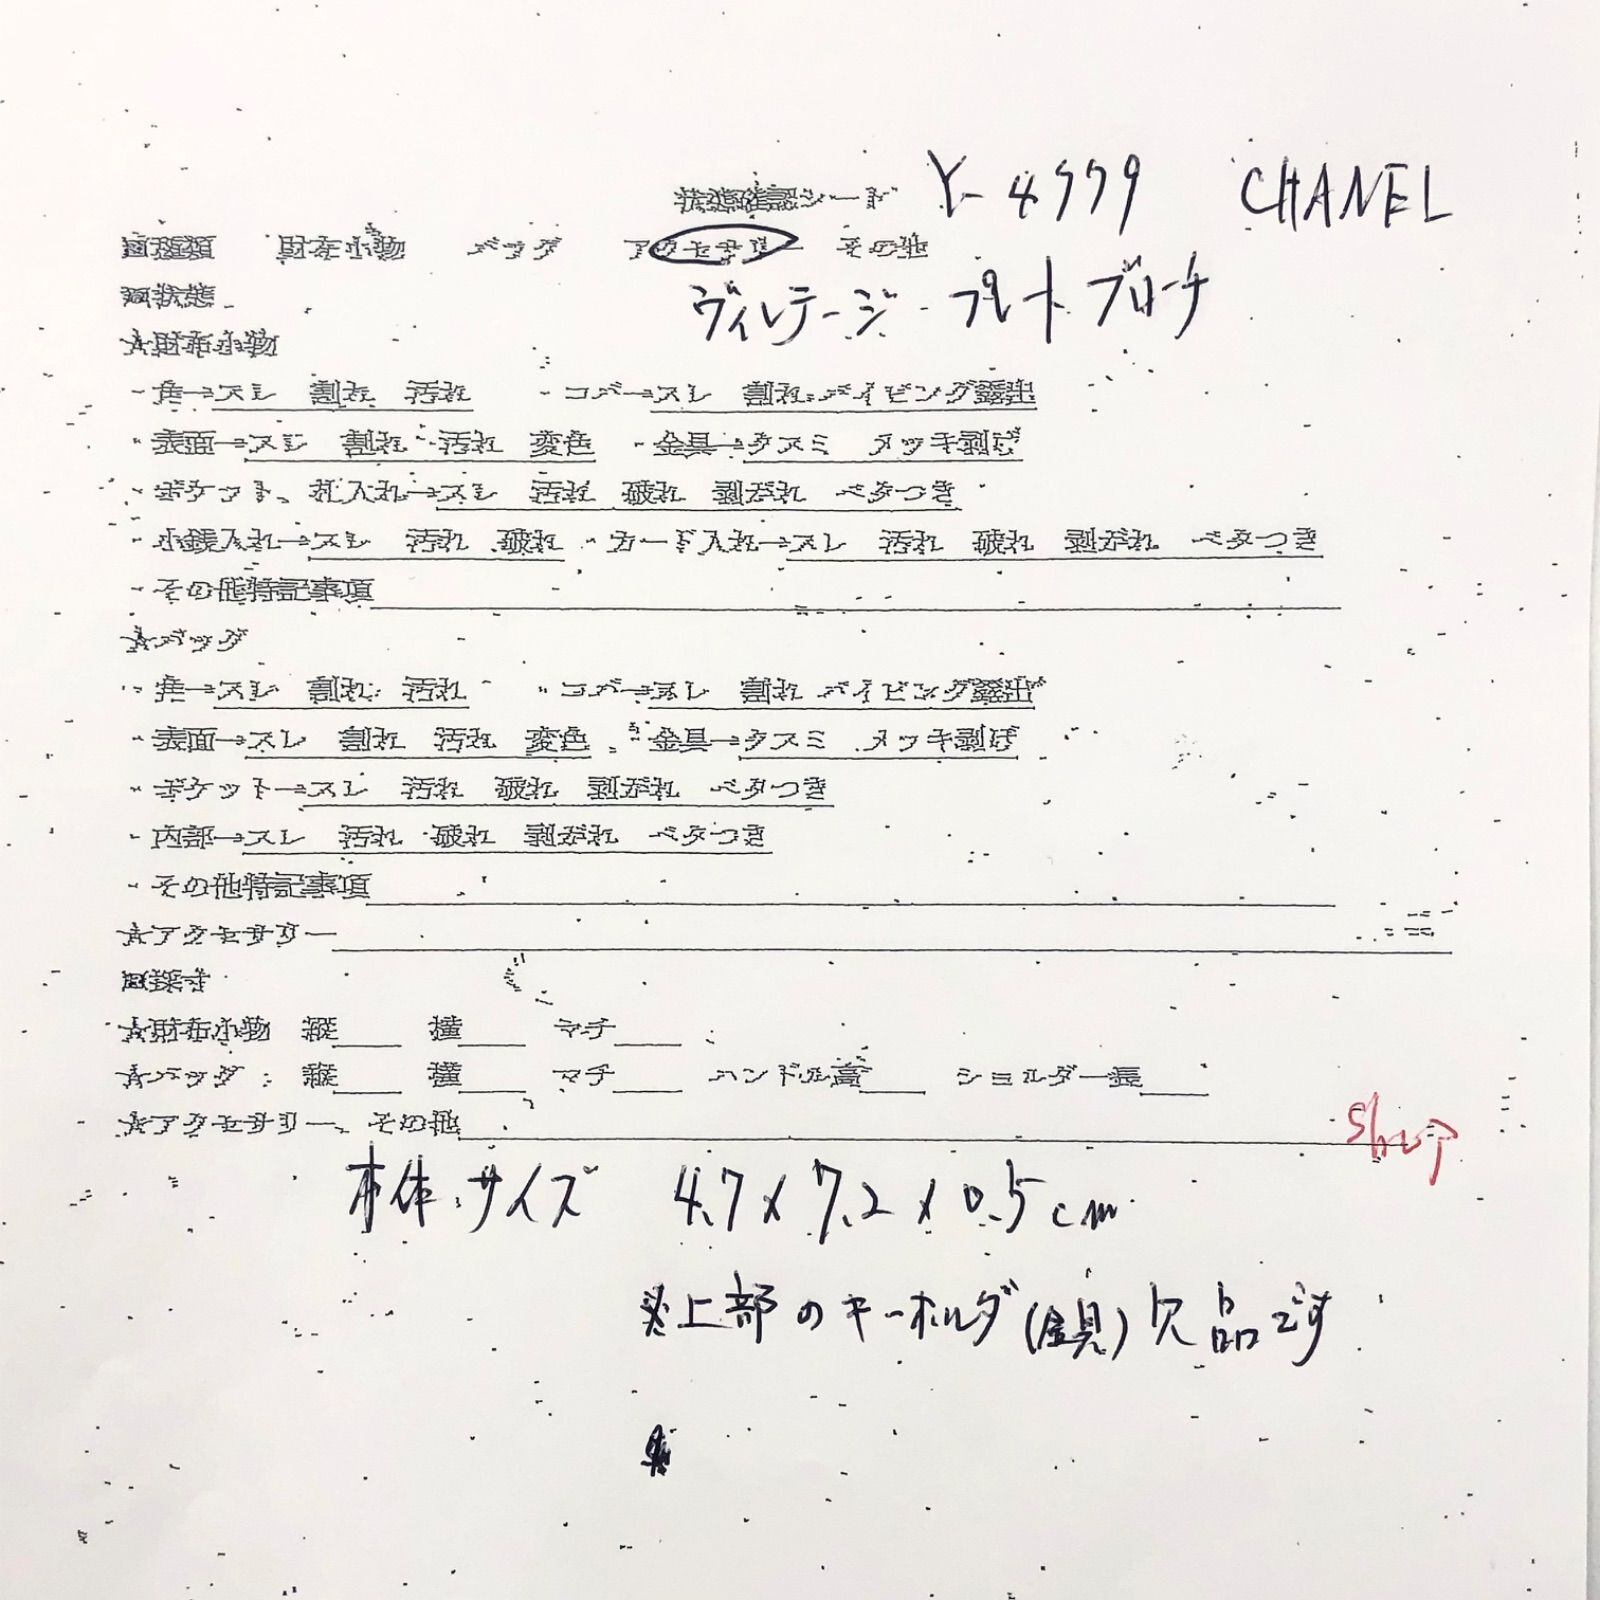 状態確認シート Y-4779 CHANEL
■種類 財布小物 バッグ アクセサリー その他
■状態
ヴィンテージ・プレートブローチ
☆財布小物
・角→スレ 割れ 汚れ ・コバ→スレ 割れ パイピング露出
・表面→スレ 割れ 汚れ 変色 ・金具→クスミ メッキ剥げ
・ポケット、札入れ→スレ 汚れ 破れ 剥がれ ベタつき
・小銭入れ→スレ 汚れ 破れ ・カード入れ→スレ 汚れ 破れ 剥がれ ベタつき
・その他特記事項
☆バッグ
・角→スレ 割れ 汚れ ・コバ→スレ 割れ パイピング露出
・表面→スレ 割れ 汚れ 変色 ・金具→クスミ メッキ剥げ
・ポケット→スレ 汚れ 破れ 剥がれ ベタつき
・内部→スレ 汚れ 破れ 剥がれ ベタつき
・その他特記事項
☆アクセサリー
■採寸
☆財布小物 縦 横 マチ
☆バッグ 縦 横 マチ ハンドル高 ショルダー長
☆アクセサリー、その他
本体サイズ 4.7×7.2×0.5cm
※上部のキーホルダ(金具)欠品です